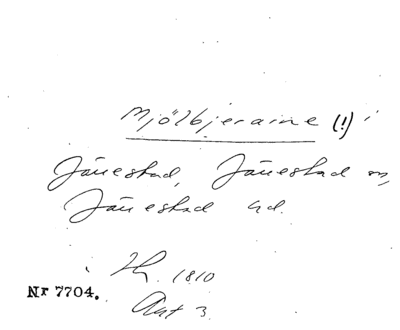 Mjölbjeraine (!) i
Jänestad, Jänestad sn,
Jänestad hd.
1810
Nr 7704.
Akt 3